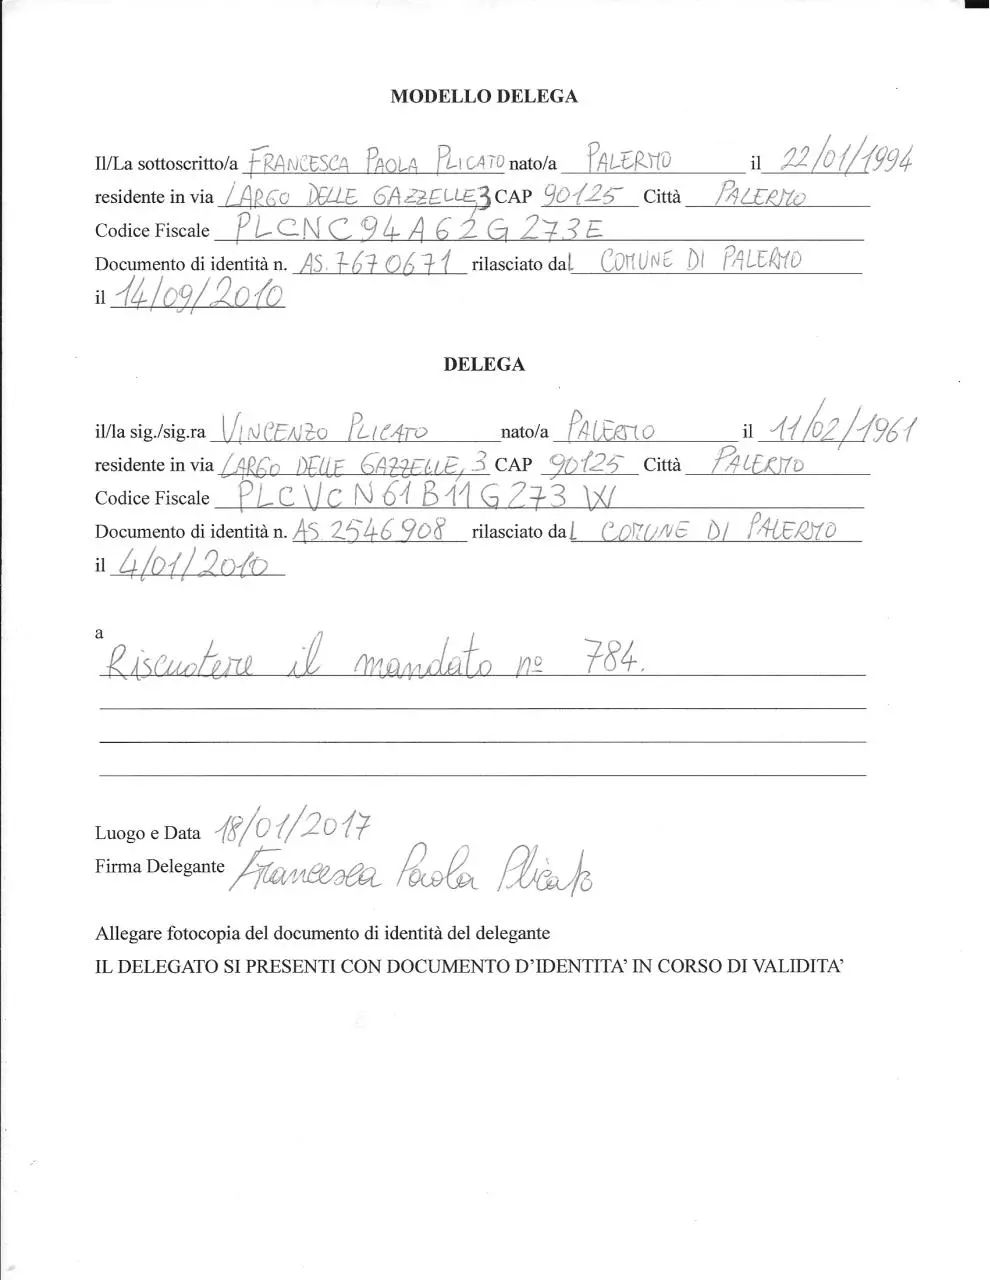 MODELLO DELEGA
Il/La sottoscritto/a FRANCESCA PAOLA PLICATO nato/a PALERMO il 22/01/1994
residente in via LARGO DELLE GAZZELLE 3 CAP 90125 Città PALERMO
Codice Fiscale PLCNC94A62G273E
Documento di identità n. AS. 7670671 rilasciato dal COMUNE DI PALERMO
il 14/09/2010
DELEGA
il/la sig./sig.ra VINCENZO PLICATO nato/a PALERMO il 11/02/1961
residente in via LARGO DELLE GAZZELLE, 3 CAP 90125 Città PALERMO
Codice Fiscale PLCVCN61B11G273W
Documento di identità n. AS 2546908 rilasciato dal COMUNE DI PALERMO
il 4/01/2010
a
Riscuotere il mandato nº 784.
Luogo e Data 18/01/2017
Firma Delegante Francesca Paola Plicato
Allegare fotocopia del documento di identità del delegante
IL DELEGATO SI PRESENTI CON DOCUMENTO D'IDENTITA' IN CORSO DI VALIDITA'